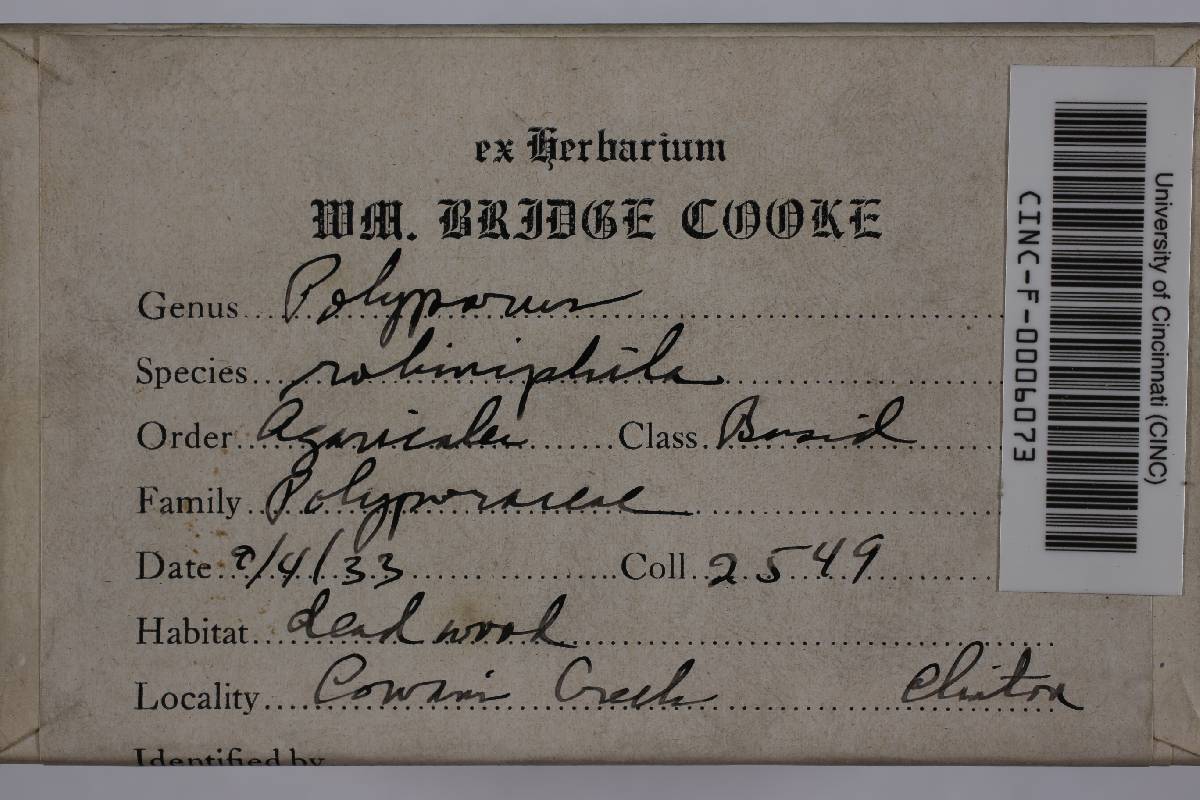 ex Herbarium
WM. BRIDGE COOKE
Genus Polyporus
Species robiniphila
Order Agaricales Class Basid
Family Polyporaceae
Date 9/4/33 Coll. 2549
Habitat dead wood
Locality Cowan Creek Clinton
Identified by
University of Cincinnati (CINC)
CINC-F-0006073